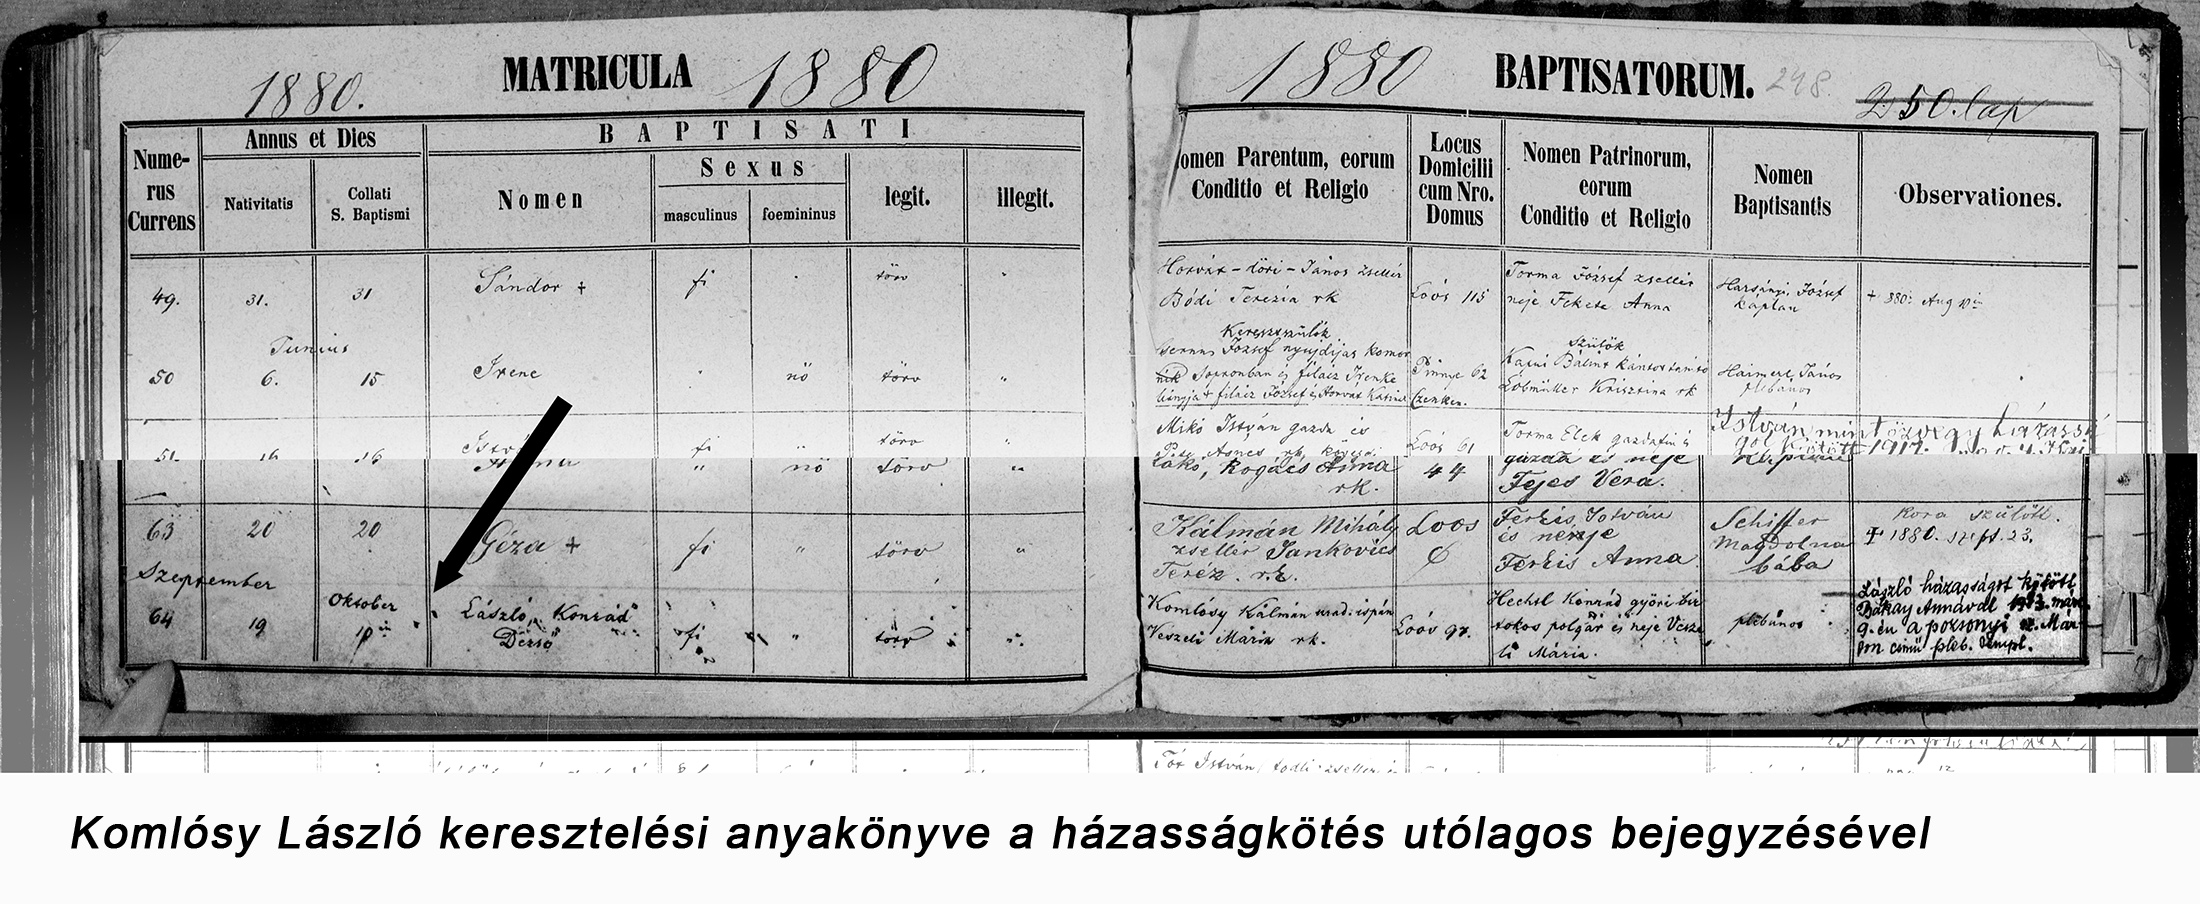 1880. MATRICULA 1880
1880 BAPTISATORUM. 248. 250. lap
Nume-
rus
Currens
Annus et Dies
Nativitatis
Collati
S. Baptismi
BAPTISATI
Nomen
Sexus
masculinus foemininus
legit. illegit.
omen Parentum, eorum
Conditio et Religio
Locus
Domicilii
cum Nro.
Domus
Nomen Patrinorum,
eorum
Conditio et Religio
Nomen
Baptisantis
Observationes.
49. 31. 31 Sándor + fi " törv "
Horvát - döri - János zsellér
Bódi Terezia rk
Loós 115
Torma József zsellér
neje Fekete Anna
Harsányi József
káplán
+ 880: Aug
Junius
50 6. 15 Irene " nö törv "
Keresztszülők
József nyugdijas komor
nik Sopronban és filácz Irenke
filácz József és Horvát
Pinnye 62
Czenken.
Szülők
Bálint kántortanító
Krisztina rk
Haimerl János
plébános
51. 16 16 fi " törv "
Mikó István gazda és
Agnes rk
Loós 61
Torma Elek gazda
István mint özvegy házassá
1917.
" nö törv "
lakó, Kogács Anna
rk.
44
gazda és neje
Fejes Vera.
63 20 20 Géza + fi " törv "
Kálmán Mihály
zsellér Jankovics
Teréz. r.k.
Loos
Ferkis István
és nevje
Ferkis Anna.
Schiffer
Magdolna
bába
Kora szülött.
+ 1880. szept. 23.
Szeptember
64 19 Oktober László, Konrád
Dezső fi " törv "
Komlósy Kálmán urad. ispán
Veszeli Mária rk.
Loós 97.
Hechtl Konrád győri bir
tokos polgár és neje Vesze
li Mária.
plébános
László házasságot kötött
Bákay Annával 1913. már.
9.-én a pozsonyi sz. Már
ton cimű pleb. templ.
Tót István
Komlósy László keresztelési anyakönyve a házasságkötés utólagos bejegyzésével